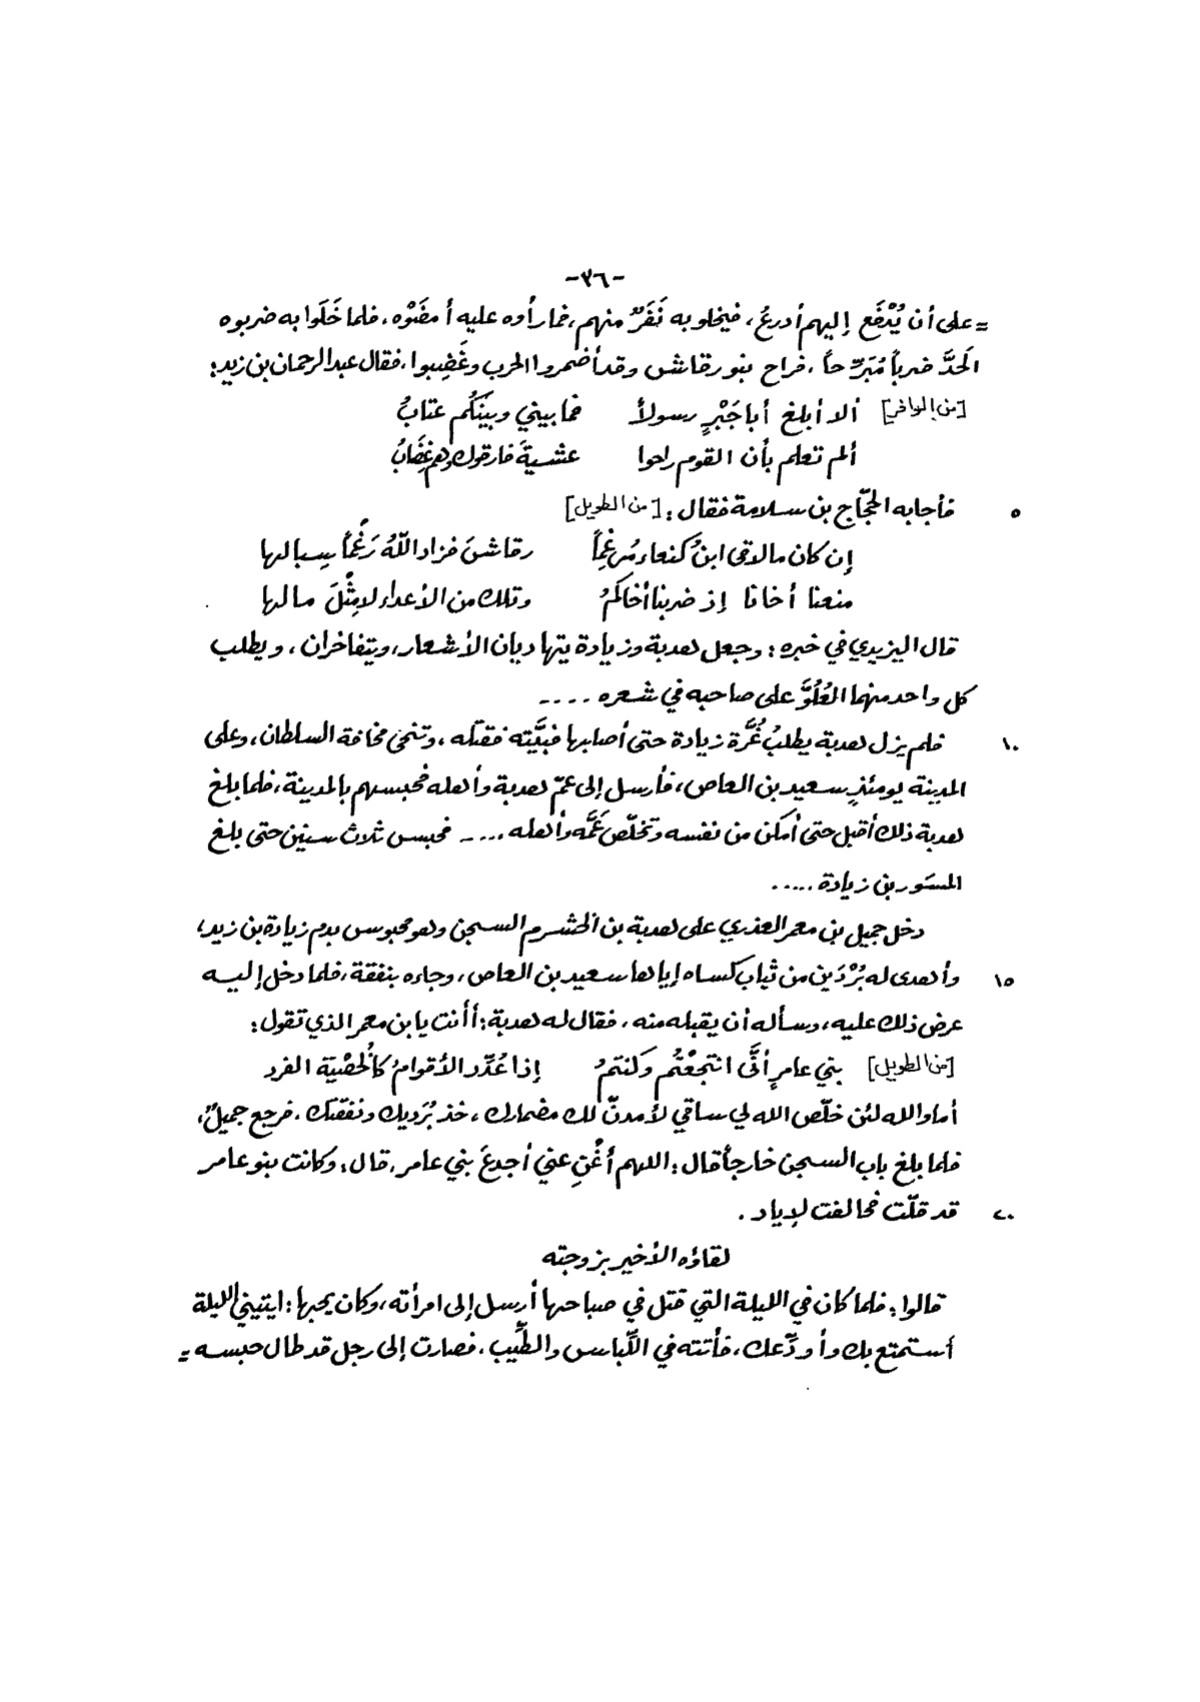 -٣٦-
= على أن يُدْفَع إليهم أدرعُ، فيخلو به نَفَرٌ منهم، فما رأوه عليه أمضَوْه، فلما خَلَوا به ضربوه
الحَدَّ ضرباً مُبَرِّحاً، فراح بنو رقاش وقد أضمروا الحرب وغَضِبوا، فقال عبد الرحمان بن زيد:
[من الوافر] ألا أبلغ أبا جَبْرٍ رسولاً فما بيني وبينَكُم عتابُ
ألم تعلم بأن القوم راحوا عشيةَ فارقوك وهم غِضَابُ
٥ فأجابه الحجّاج بن سلامة فقال: [من الطويل]
إن كان ما لاقى ابنُ كنعاء مُرغِماً رقاشَ فزاد اللّهُ رَغْماً سِبالها
منعنا أخانا إذ ضربنا أخاكمُ وتلك من الأعداء لا مِثْلَ مالها
قال اليزيدي في خبره: وجعل هدبة وزيادة يتهاديان الأشعار، ويتفاخران، ويطلب
كل واحد منهما العُلُوَّ على صاحبه في شعره ....
١٠ فلم يزل هدبة يطلبُ غُرَّة زيادة حتى أصابها فبَيَّته فقتله، وتنحى مخافة السلطان، وعلى
المدينة يومئذٍ سعيد بن العاص، فأرسل إلى عمّ هدبة وأهله فحبسهم بالمدينة، فلما بلغ
هدبة ذلك أقبل حتى أمكن من نفسه وتخلّص عَمَّه وأهله .... فحبس ثلاث سنين حتى بلغ
المسَور بن زيادة .....
دخل جميل بن معمر العذري على هدبة بن الخشرم السجن وهو محبوس بدم زيادة بن زيد،
١٥ وأهدى له بُرْدَين من ثياب كساه إياها سعيد بن العاص، وجاءه بنفقة، فلما دخل إليه
عرض ذلك عليه، وسأله أن يقبله منه، فقال له هدبة: أأنت يا بن معمر الذي تقول:
[من الطويل] بني عامرٍ أنَّى انتجعْتُم وكنتمُ إذا عُدِّد الأقوامُ كالخُصْيَة الفرد
أما والله لئن خلّص الله لي ساقي لأمدنّ لك مضمارك، خذ بُرديك ونفقتك، فرجع جميلٌ،
فلما بلغ باب السجن خارجاً قال: اللهم أغْنِ عني أجدعَ بني عامر، قال: وكانت بنو عامر
٢٠ قد قلّت فحالفت لإياد.
لقاؤه الأخير بزوجته
قالوا: فلما كان في الليلة التي قتل في صباحها أرسل إلى امرأته، وكان يحبها: ايتيني الليلة
أستمتع بك وأودِّعك، فأتته في اللّباس والطِّيب، فصارت إلى رجل قد طال حبسه =